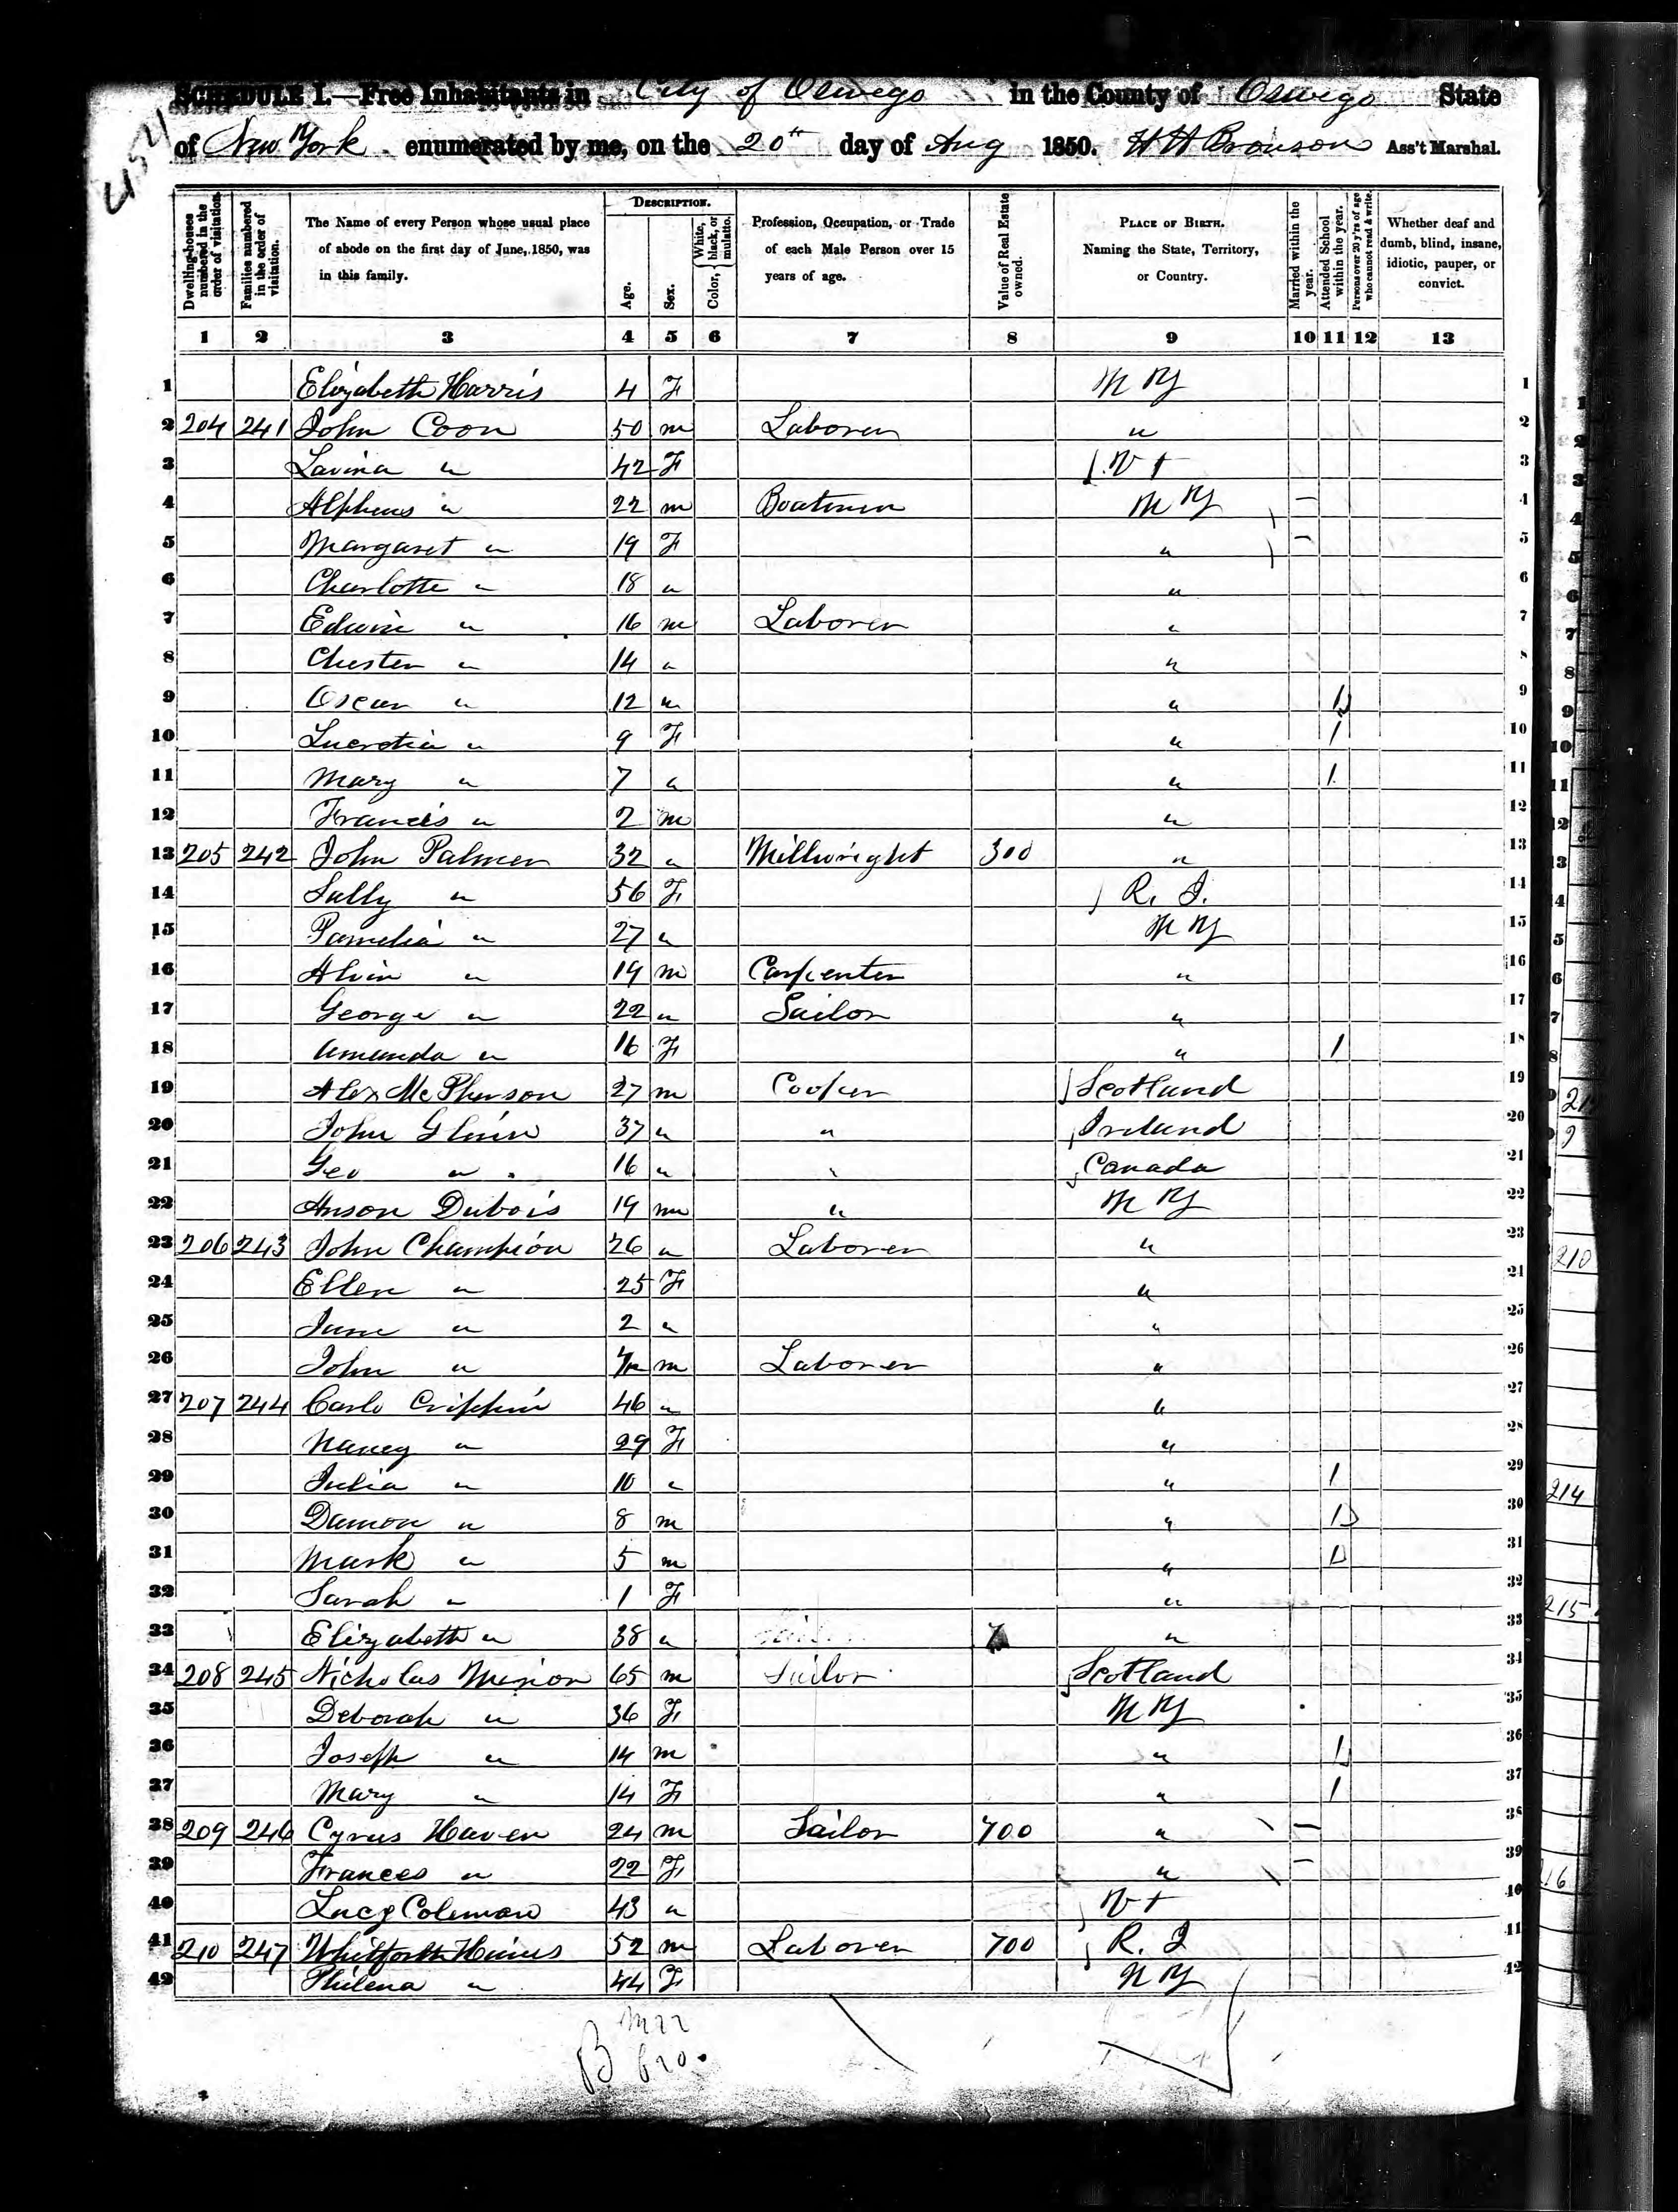 4521
SCHEDULE I.—Free Inhabitants in City of Oswego in the County of Oswego State
of New York enumerated by me, on the 20th day of Aug 1850. H H Bronson Ass't Marshal.
Dwelling-houses numbered in the order of visitation.
Families numbered in the order of visitation.
The Name of every Person whose usual place of abode on the first day of June, 1850, was in this family.
DESCRIPTION.
Age.
Sex.
Color, { White, black, or mulatto.
Profession, Occupation, or Trade of each Male Person over 15 years of age.
Value of Real Estate owned.
PLACE OF BIRTH. Naming the State, Territory, or Country.
Married within the year.
Attended School within the year.
Persons over 20 y'rs of age who cannot read & write.
Whether deaf and dumb, blind, insane, idiotic, pauper, or convict.
1 2 3 4 5 6 7 8 9 10 11 12 13
1 Elizabeth Harris 4 F N Y 1
2 204 241 John Coon 50 m Laborer " 2
3 Lavina " 42 F Vt 3
4 Alpheus " 22 m Boatman N Y — 4
5 Margaret " 19 F " — 5
6 Charlotte " 18 " " 6
7 Edwin " 16 m Laborer " 7
8 Chester " 14 " " 8
9 Oscar " 12 " " 1 9
10 Lucretia " 9 F " 1 10
11 Mary " 7 " " 1 11
12 Francis " 2 m " 12
13 205 242 John Palmer 32 " Millwright 300 " 13
14 Sally " 56 F R. I. 14
15 Pamelia " 27 " N Y 15
16 Alvin " 19 m Carpenter " 16
17 George " 22 " Sailor " 17
18 Amanda " 16 F " 1 18
19 Alex McPherson 27 m Cooper Scotland 19
20 John 37 " " Ireland 20
21 Geo " 16 " " Canada 21
22 Anson Dubois 19 m " N Y 22
23 206 243 John Champion 26 " Laborer " 23
24 Ellen " 25 F " 24
25 Jane " 2 " " 25
26 John " m Laborer " 26
27 207 244 Carlo Crippin 46 " " 27
28 Nancy " 29 F " 28
29 Julia " 10 " " 1 29
30 Damon " 8 m " 1 30
31 Mark " 5 m " 1 31
32 Sarah " 1 F " 32
33 Elizabeth " 38 " " 33
34 208 245 Nicholas 65 m Sailor Scotland 34
35 Deborah " 36 F N Y 35
36 Joseph " 14 m " 1 36
37 Mary " 14 F " 1 37
38 209 246 Cyrus Haven 24 m Sailor 700 " — 38
39 Frances " 22 F " — 39
40 Lucy Coleman 43 " Vt 40
41 210 247 52 m Laborer 700 R. I 41
42 Philena " 44 F N Y 42
m 22
B 620.